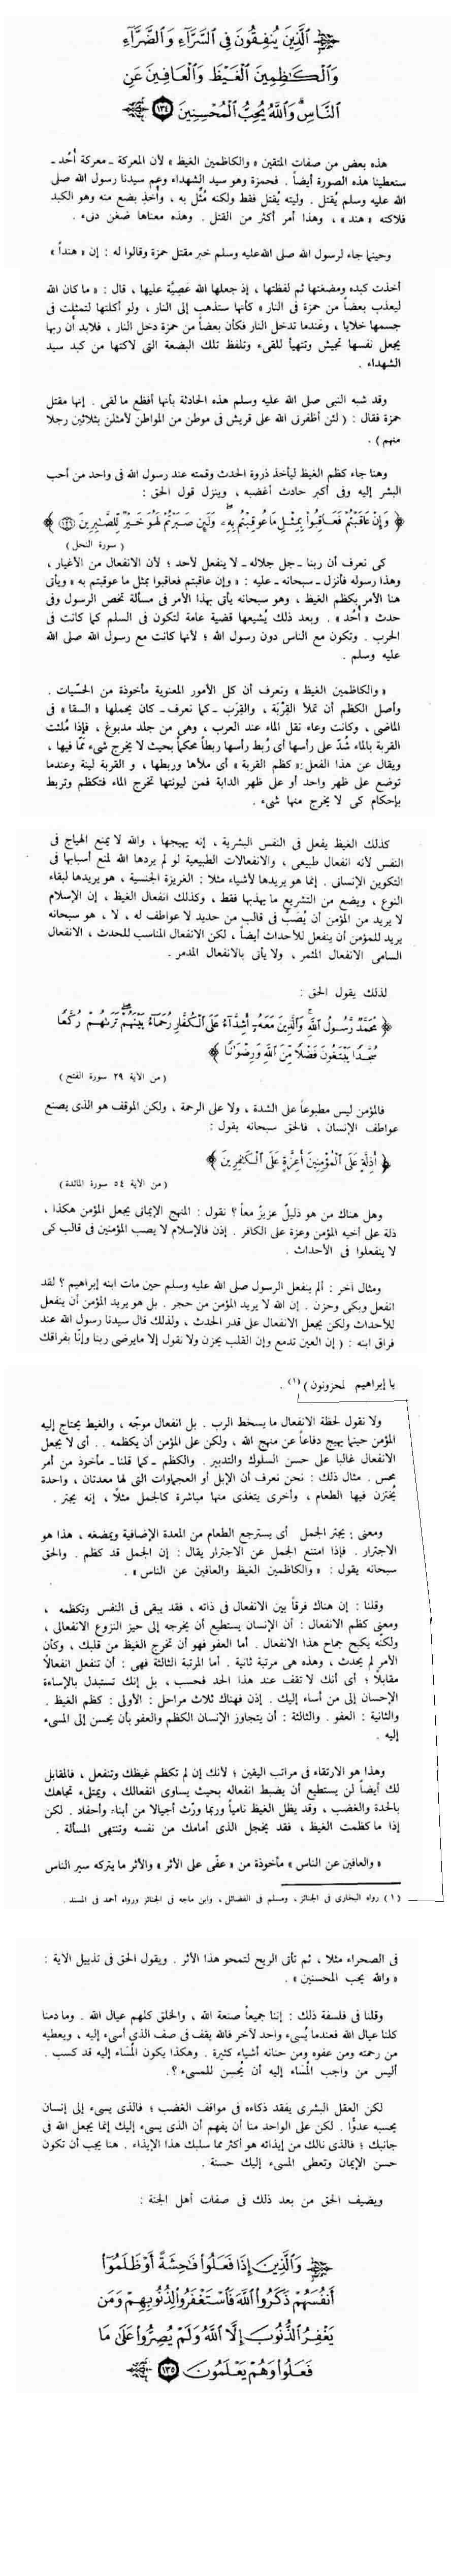 ٱلَّذِينَ يُنفِقُونَ فِى ٱلسَّرَّآءِ وَٱلضَّرَّآءِ
وَٱلْكَٰظِمِينَ ٱلْغَيْظَ وَٱلْعَافِينَ عَنِ
ٱلنَّاسِ ۗ وَٱللَّهُ يُحِبُّ ٱلْمُحْسِنِينَ ١٣٤
هذه بعض من صفات المتقين « والكاظمين الغيظ » لأن المعركة ـ معركة أُحُد ـ
ستعطينا هذه الصورة أيضاً . فحمزة وهو سيد الشهداء وعم سيدنا رسول الله صلى
الله عليه وسلم يُقتل . وليته يُقتل فقط ولكنه مُثِّل به ، وأُخذ بضع منه وهو الكبد
فلاكته « هند » ، وهذا أمر أكثر من القتل . وهذه معناها ضغن دنىء .
وحينما جاء لرسول الله صلى الله عليه وسلم خبر مقتل حمزة وقالوا له : إن « هنداً »
أخذت كبده ومضغتها ثم لفظتها ، إذ جعلها الله عَصِيَّة عليها ، قال : « ما كان الله
ليعذب بعضاً من حمزة فى النار » كأنها ستذهب إلى النار ، ولو أكلتها لتمثلت فى
جسمها خلايا ، وعندما تدخل النار فكأن بعضاً من حمزة دخل النار ، فلابد أن ربها
يجعل نفسها تجيش وتتهيأ للقىء وتلفظ تلك البضعة التى لاكتها من كبد سيد
الشهداء .
وقد شبه النبى صلى الله عليه وسلم هذه الحادثة بأنها أفظع ما لقى . إنها مقتل
حمزة فقال : ( لئن أظفرنى الله على قريش فى موطن من المواطن لأمثلن بثلاثين رجلا
منهم ) .
وهنا جاء كظم الغيظ ليأخذ ذروة الحدث وقمته عند رسول الله فى واحد من أحب
البشر إليه وفى أكبر حادث أغضبه ، وينزل قول الحق :
﴿ وَإِنْ عَاقَبْتُمْ فَعَاقِبُوا۟ بِمِثْلِ مَا عُوقِبْتُم بِهِۦ ۖ وَلَئِن صَبَرْتُمْ لَهُوَ خَيْرٌ لِّلصَّٰبِرِينَ ١٢٦ ﴾
( سورة النحل )
كى نعرف أن ربنا ـ جل جلاله ـ لا ينفعل لأحد ؛ لأن الانفعال من الأغيار ،
وهذا رسوله فأنزل ـ سبحانه ـ عليه : « وإن عاقبتم فعاقبوا بمثل ما عوقبتم به » ويأتى
هنا الأمر بكظم الغيظ ، وهو سبحانه يأتى بهذا الأمر فى مسألة تخص الرسول وفى
حدث « أُحُد » . وبعد ذلك يُشيعها قضية عامة لتكون فى السلم كما كانت فى
الحرب . وتكون مع الناس دون رسول الله ؛ لأنها كانت مع رسول الله صلى الله
عليه وسلم .
« والكاظمين الغيظ » ونعرف أن كل الأمور المعنوية مأخوذة من الحسّيات .
وأصل الكظم أن تملأ القِرْبَة ، والقِرَب ـ كما نعرف ـ كان يحملها « السقا » فى
الماضى ، وكانت وعاء نقل الماء عند العرب ، وهى من جلد مدبوغ ، فإذا مُلئت
القربة بالماء شُدّ على رأسها أى رُبط رأسها ربطاً محكماً بحيث لا يخرج شىء ممّا فيها ،
ويقال عن هذا الفعل : « كظم القربة » أى ملأها وربطها ، و القربة لينة وعندما
توضع على ظهر واحد أو على ظهر الدابة فمن ليونتها تخرج الماء فتكظم وتربط
بإحكام كى لا يخرج منها شىء .
كذلك الغيظ يفعل فى النفس البشرية ، إنه يهيجها ، والله لا يمنع الهياج فى
النفس لأنه انفعال طبيعى ، والانفعالات الطبيعية لو لم يردها الله لمنع أسبابها فى
التكوين الإنسانى . إنما هو يريدها لأشياء مثلا : الغريزة الجنسية ، هو يريدها لبقاء
النوع ، ويضع من التشريع ما يهذبها فقط ، وكذلك انفعال الغيظ ، إن الإسلام
لا يريد من المؤمن أن يُصَبّ فى قالب من حديد لا عواطف له ، لا ، هو سبحانه
يريد للمؤمن أن ينفعل للأحداث أيضاً ، لكن الانفعال المناسب للحدث ، الانفعال
السامى الانفعال المثمر ، ولا يأتى بالانفعال المدمر .
لذلك يقول الحق :
﴿ مُّحَمَّدٌ رَّسُولُ ٱللَّهِ ۚ وَٱلَّذِينَ مَعَهُۥٓ أَشِدَّآءُ عَلَى ٱلْكُفَّارِ رُحَمَآءُ بَيْنَهُمْ ۖ تَرَىٰهُمْ رُكَّعًا
سُجَّدًا يَبْتَغُونَ فَضْلًا مِّنَ ٱللَّهِ وَرِضْوَٰنًا ﴾
( من الآية ٢٩ سورة الفتح )
فالمؤمن ليس مطبوعاً على الشدة ، ولا على الرحمة ، ولكن الموقف هو الذى يصنع
عواطف الإنسان ، فالحق سبحانه يقول :
﴿ أَذِلَّةٍ عَلَى ٱلْمُؤْمِنِينَ أَعِزَّةٍ عَلَى ٱلْكَٰفِرِينَ ﴾
( من الآية ٥٤ سورة المائدة )
وهل هناك من هو ذليلٌ عزيزٌ معاً ؟ نقول : المنهج الإيمانى يجعل المؤمن هكذا ،
ذلة على أخيه المؤمن وعزة على الكافر . إذن فالإسلام لا يصب المؤمنين فى قالب كى
لا ينفعلوا فى الأحداث .
ومثال آخر : ألم ينفعل الرسول صلى الله عليه وسلم حين مات ابنه إبراهيم ؟ لقد
انفعل وبكى وحزن . إن الله لا يريد المؤمن من حجر . بل هو يريد المؤمن أن ينفعل
للأحداث ولكن يجعل الانفعال على قدر الحدث ، ولذلك قال سيدنا رسول الله عند
فراق ابنه : ( إن العين تدمع وإن القلب يحزن ولا نقول إلا مايرضى ربنا وإنّا بفراقك
يا إبراهيم لمحزونون ) (١) .
ولا نقول لحظة الانفعال ما يسخط الرب . بل انفعال موجّه ، والغيط يحتاج إليه
المؤمن حينما يهيج دفاعاً عن منهج الله ، ولكن على المؤمن أن يكظمه . . أى لا يجعل
الانفعال غالبا على حسن السلوك والتدبير . والكظم ـ كما قلنا ـ مأخوذ من أمر
محس . مثال ذلك : نحن نعرف أن الإبل أو العجماوات التى لها معدتان ، واحدة
يُختزن فيها الطعام ، وأخرى يتغذى منها مباشرة كالجمل مثلاً ، إنه يجتر .
ومعنى : يجتر الجمل أى يسترجع الطعام من المعدة الإضافية ويمضغه ، هذا هو
الاجترار . فإذا امتنع الجمل عن الاجترار يقال : إن الجمل قد كظم . والحق
سبحانه يقول : « والكاظمين الغيظ والعافين عن الناس » .
وقلنا : إن هناك فرقاً بين الانفعال فى ذاته ، فقد يبقى فى النفس وتكظمه ،
ومعنى كظم الانفعال : أن الإنسان يستطيع أن يخرجه إلى حيز النزوع الانفعالى ،
ولكنّه يكبح جماح هذا الانفعال . أما العفو فهو أن تخرج الغيظ من قلبك ، وكأن
الأمر لم يحدث ، وهذه هى مرتبة ثانية . أما المرتبة الثالثة فهى : أن تنفعل انفعالًا
مقابلًا ؛ أى أنك لا تقف عند هذا الحد فحسب ، بل إنك تستبدل بالإساءة
الإحسان إلى من أساء إليك . إذن فهناك ثلاث مراحل : الأولى : كظم الغيظ .
والثانية : العفو . والثالثة : أن يتجاوز الإنسان الكظم والعفو بأن يحسن إلى المسىء
إليه .
وهذا هو الارتقاء فى مراتب اليقين ؛ لأنك إن لم تكظم غيظك وتنفعل ، فالمقابل
لك أيضاً لن يستطيع أن يضبط انفعاله بحيث يساوى انفعالك ، ويمتلىء تجاهك
بالحدة والغضب ، وقد يظل الغيظ نامياً وربما ورّث أجيالا من أبناء وأحفاد . لكن
إذا ما كظمت الغيظ ، فقد يخجل الذى أمامك من نفسه وتنتهى المسألة .
« والعافين عن الناس » مأخوذة من « عفّى على الأثر » والأثر ما يتركه سير الناس
( ١ ) رواه البخارى فى الجنائز ، ومسلم فى الفضائل ، وابن ماجه فى الجنائز ورواه أحمد فى المسند .
فى الصحراء مثلا ، ثم تأتى الريح لتمحو هذا الأثر . ويقول الحق فى تذييل الآية :
« والله يحب المحسنين » .
وقلنا فى فلسفة ذلك : إننا جميعاً صنعة الله ، والخلق كلهم عيال الله . وما دمنا
كلنا عيال الله فعندما يُسىء واحد لآخر فالله يقف فى صف الذى أسىء إليه ، ويعطيه
من رحمته ومن عفوه ومن حنانه أشياء كثيرة . وهكذا يكون المُسَاء إليه قد كسب .
أليس من واجب المُسَاء إليه أن يُحسِن للمسىء ؟ .
لكن العقل البشرى يفقد ذكاءه فى مواقف الغضب ؛ فالذى يسىء إلى إنسان
يحسبه عدوًّا . لكن على الواحد منا أن يفهم أن الذى يسىء إليك إنما يجعل الله فى
جانبك ؛ فالذى نالك من إيذائه هو أكثر مما سلبك هذا الإيذاء . هنا يجب أن تكون
حسن الإيمان وتعطى المسىء إليك حسنة .
ويضيف الحق من بعد ذلك فى صفات أهل الجنة :
وَٱلَّذِينَ إِذَا فَعَلُوا۟ فَٰحِشَةً أَوْ ظَلَمُوٓا۟
أَنفُسَهُمْ ذَكَرُوا۟ ٱللَّهَ فَٱسْتَغْفَرُوا۟ لِذُنُوبِهِمْ وَمَن
يَغْفِرُ ٱلذُّنُوبَ إِلَّا ٱللَّهُ وَلَمْ يُصِرُّوا۟ عَلَىٰ مَا
فَعَلُوا۟ وَهُمْ يَعْلَمُونَ ١٣٥